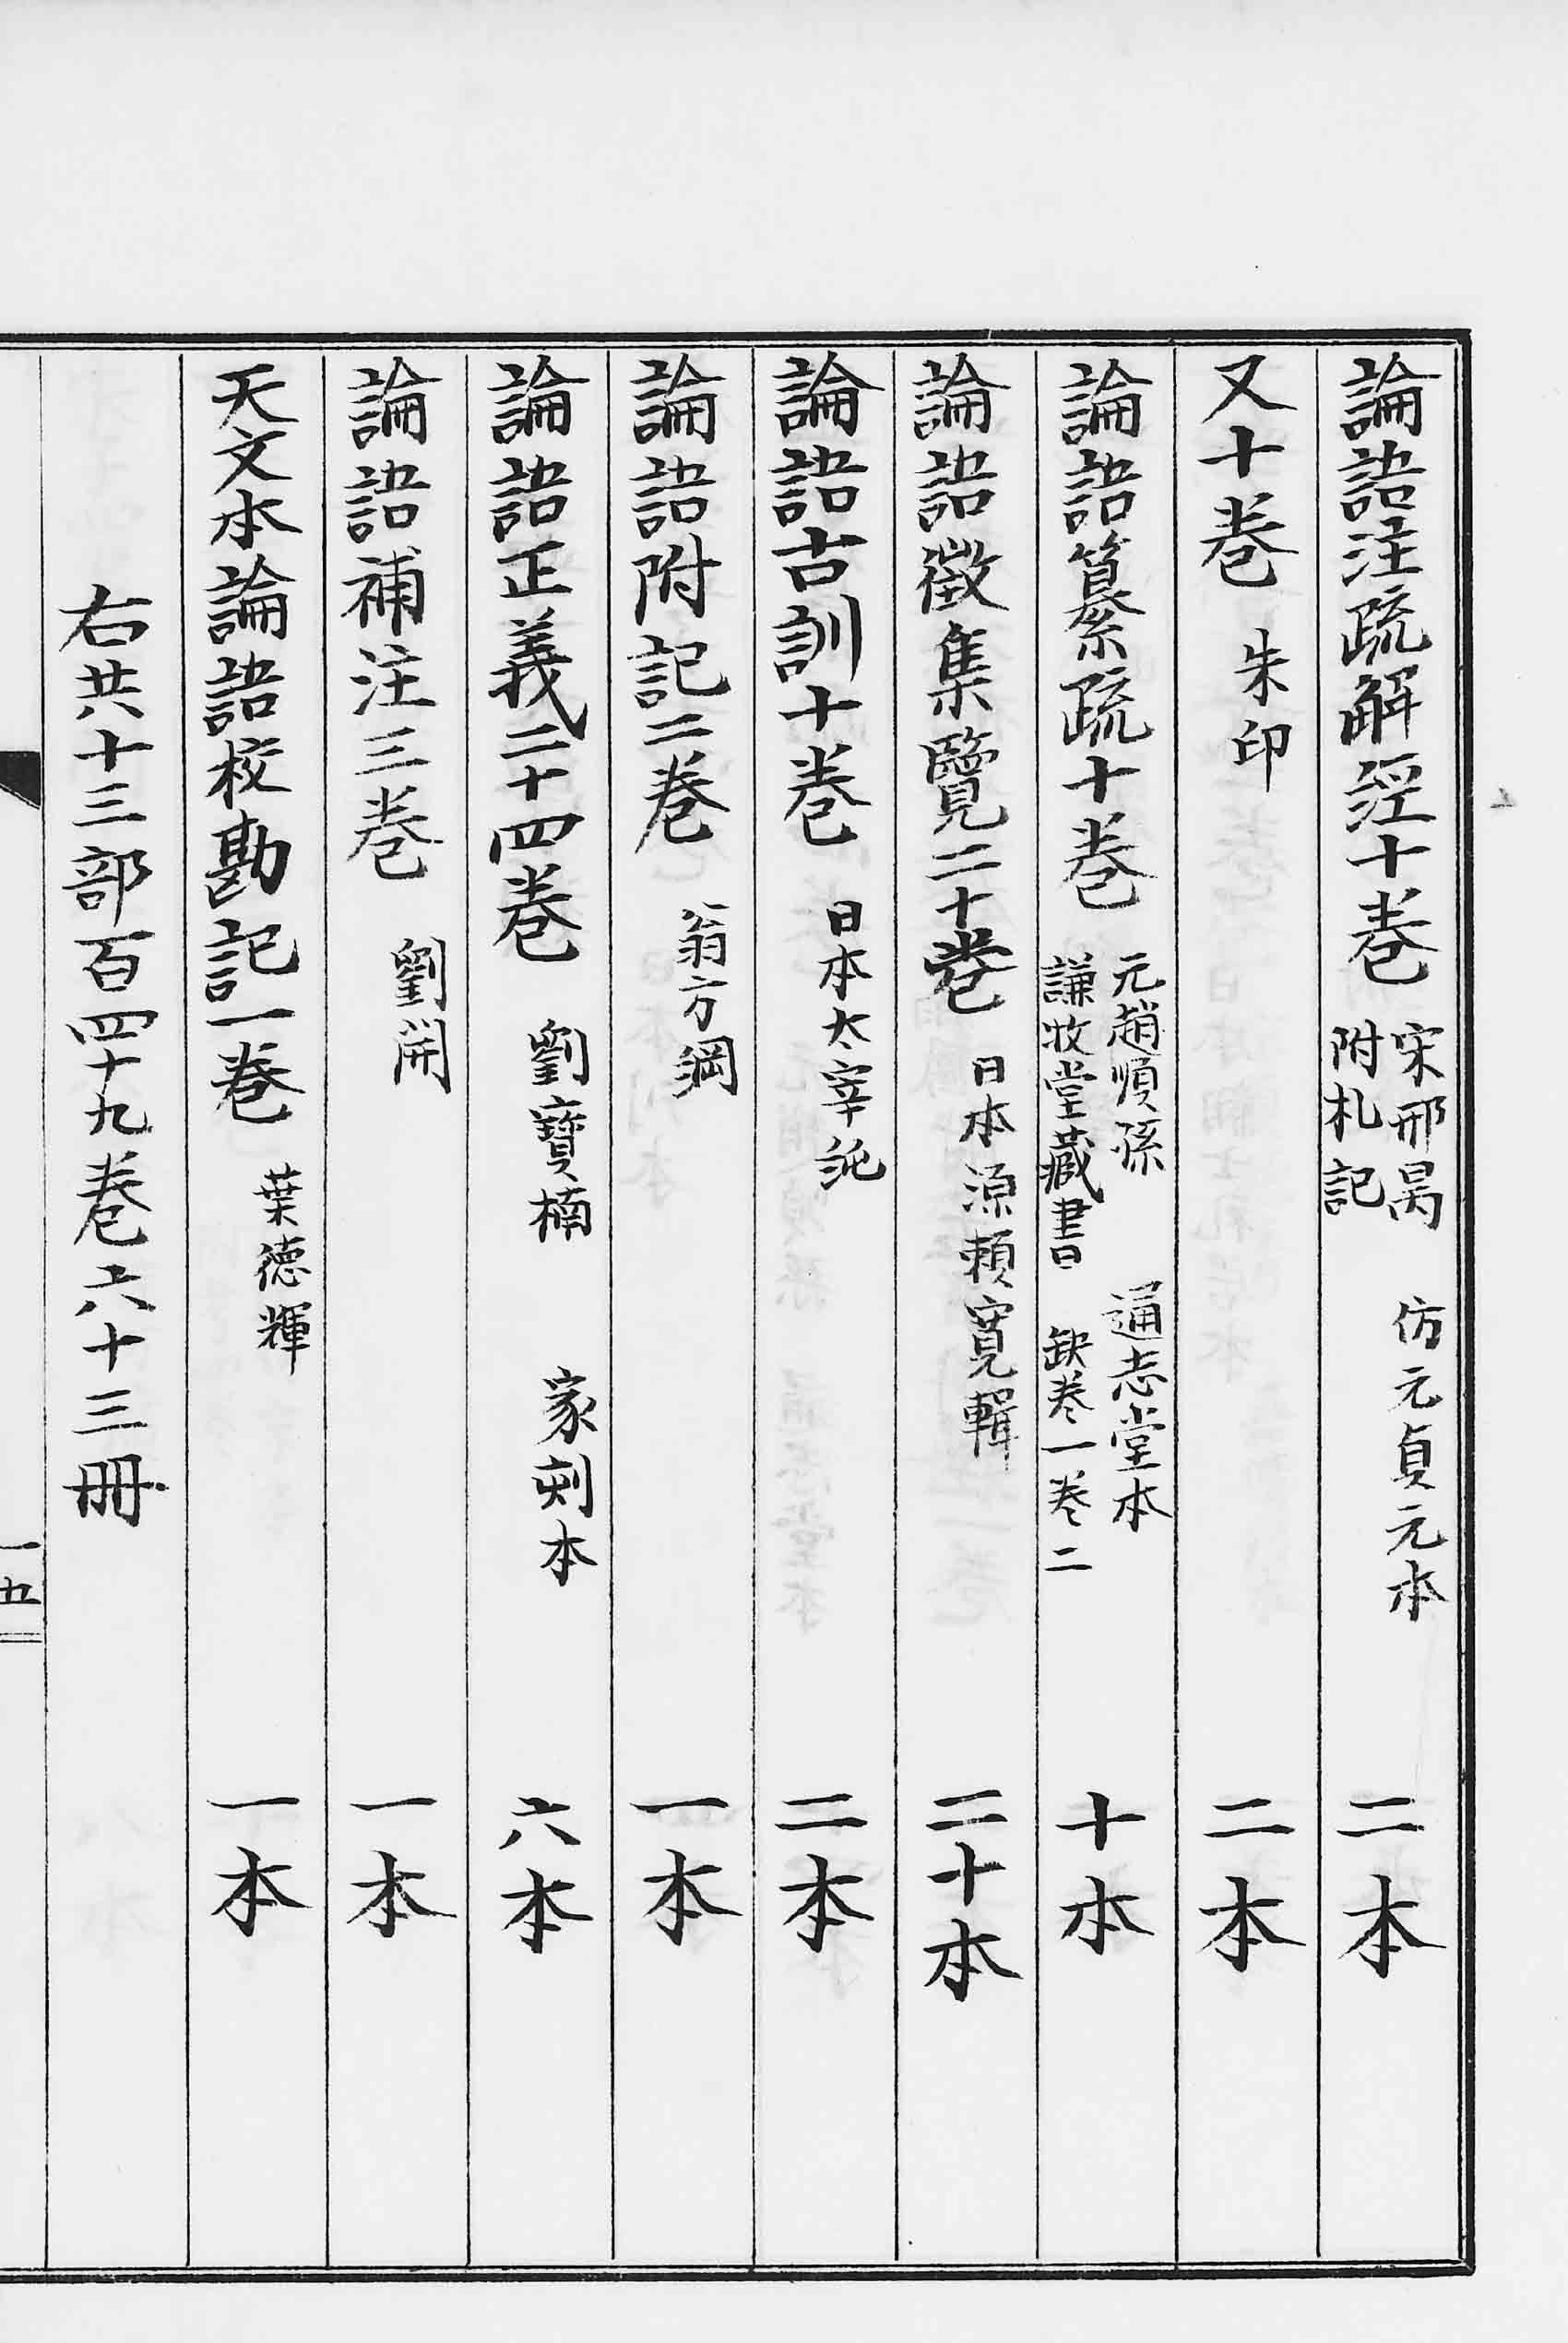 論語注疏解經十卷 宋邢昺 附札記 仿元貞元本 二本
又十卷 朱印 二本
論語纂疏十卷 元趙順孫 通志堂本 謙牧堂藏書 缺卷一卷二 十本
論語徵集覽二十卷 日本源賴寬輯 二十本
論語古訓十卷 日本太宰純 二本
論語附記二卷 翁方綱 一本
論語正義二十四卷 劉寶楠 家刻本 六本
論語補注三卷 劉開 一本
天文本論語校勘記一卷 葉德輝 一本
右共十三部百四十九卷六十三冊
一五